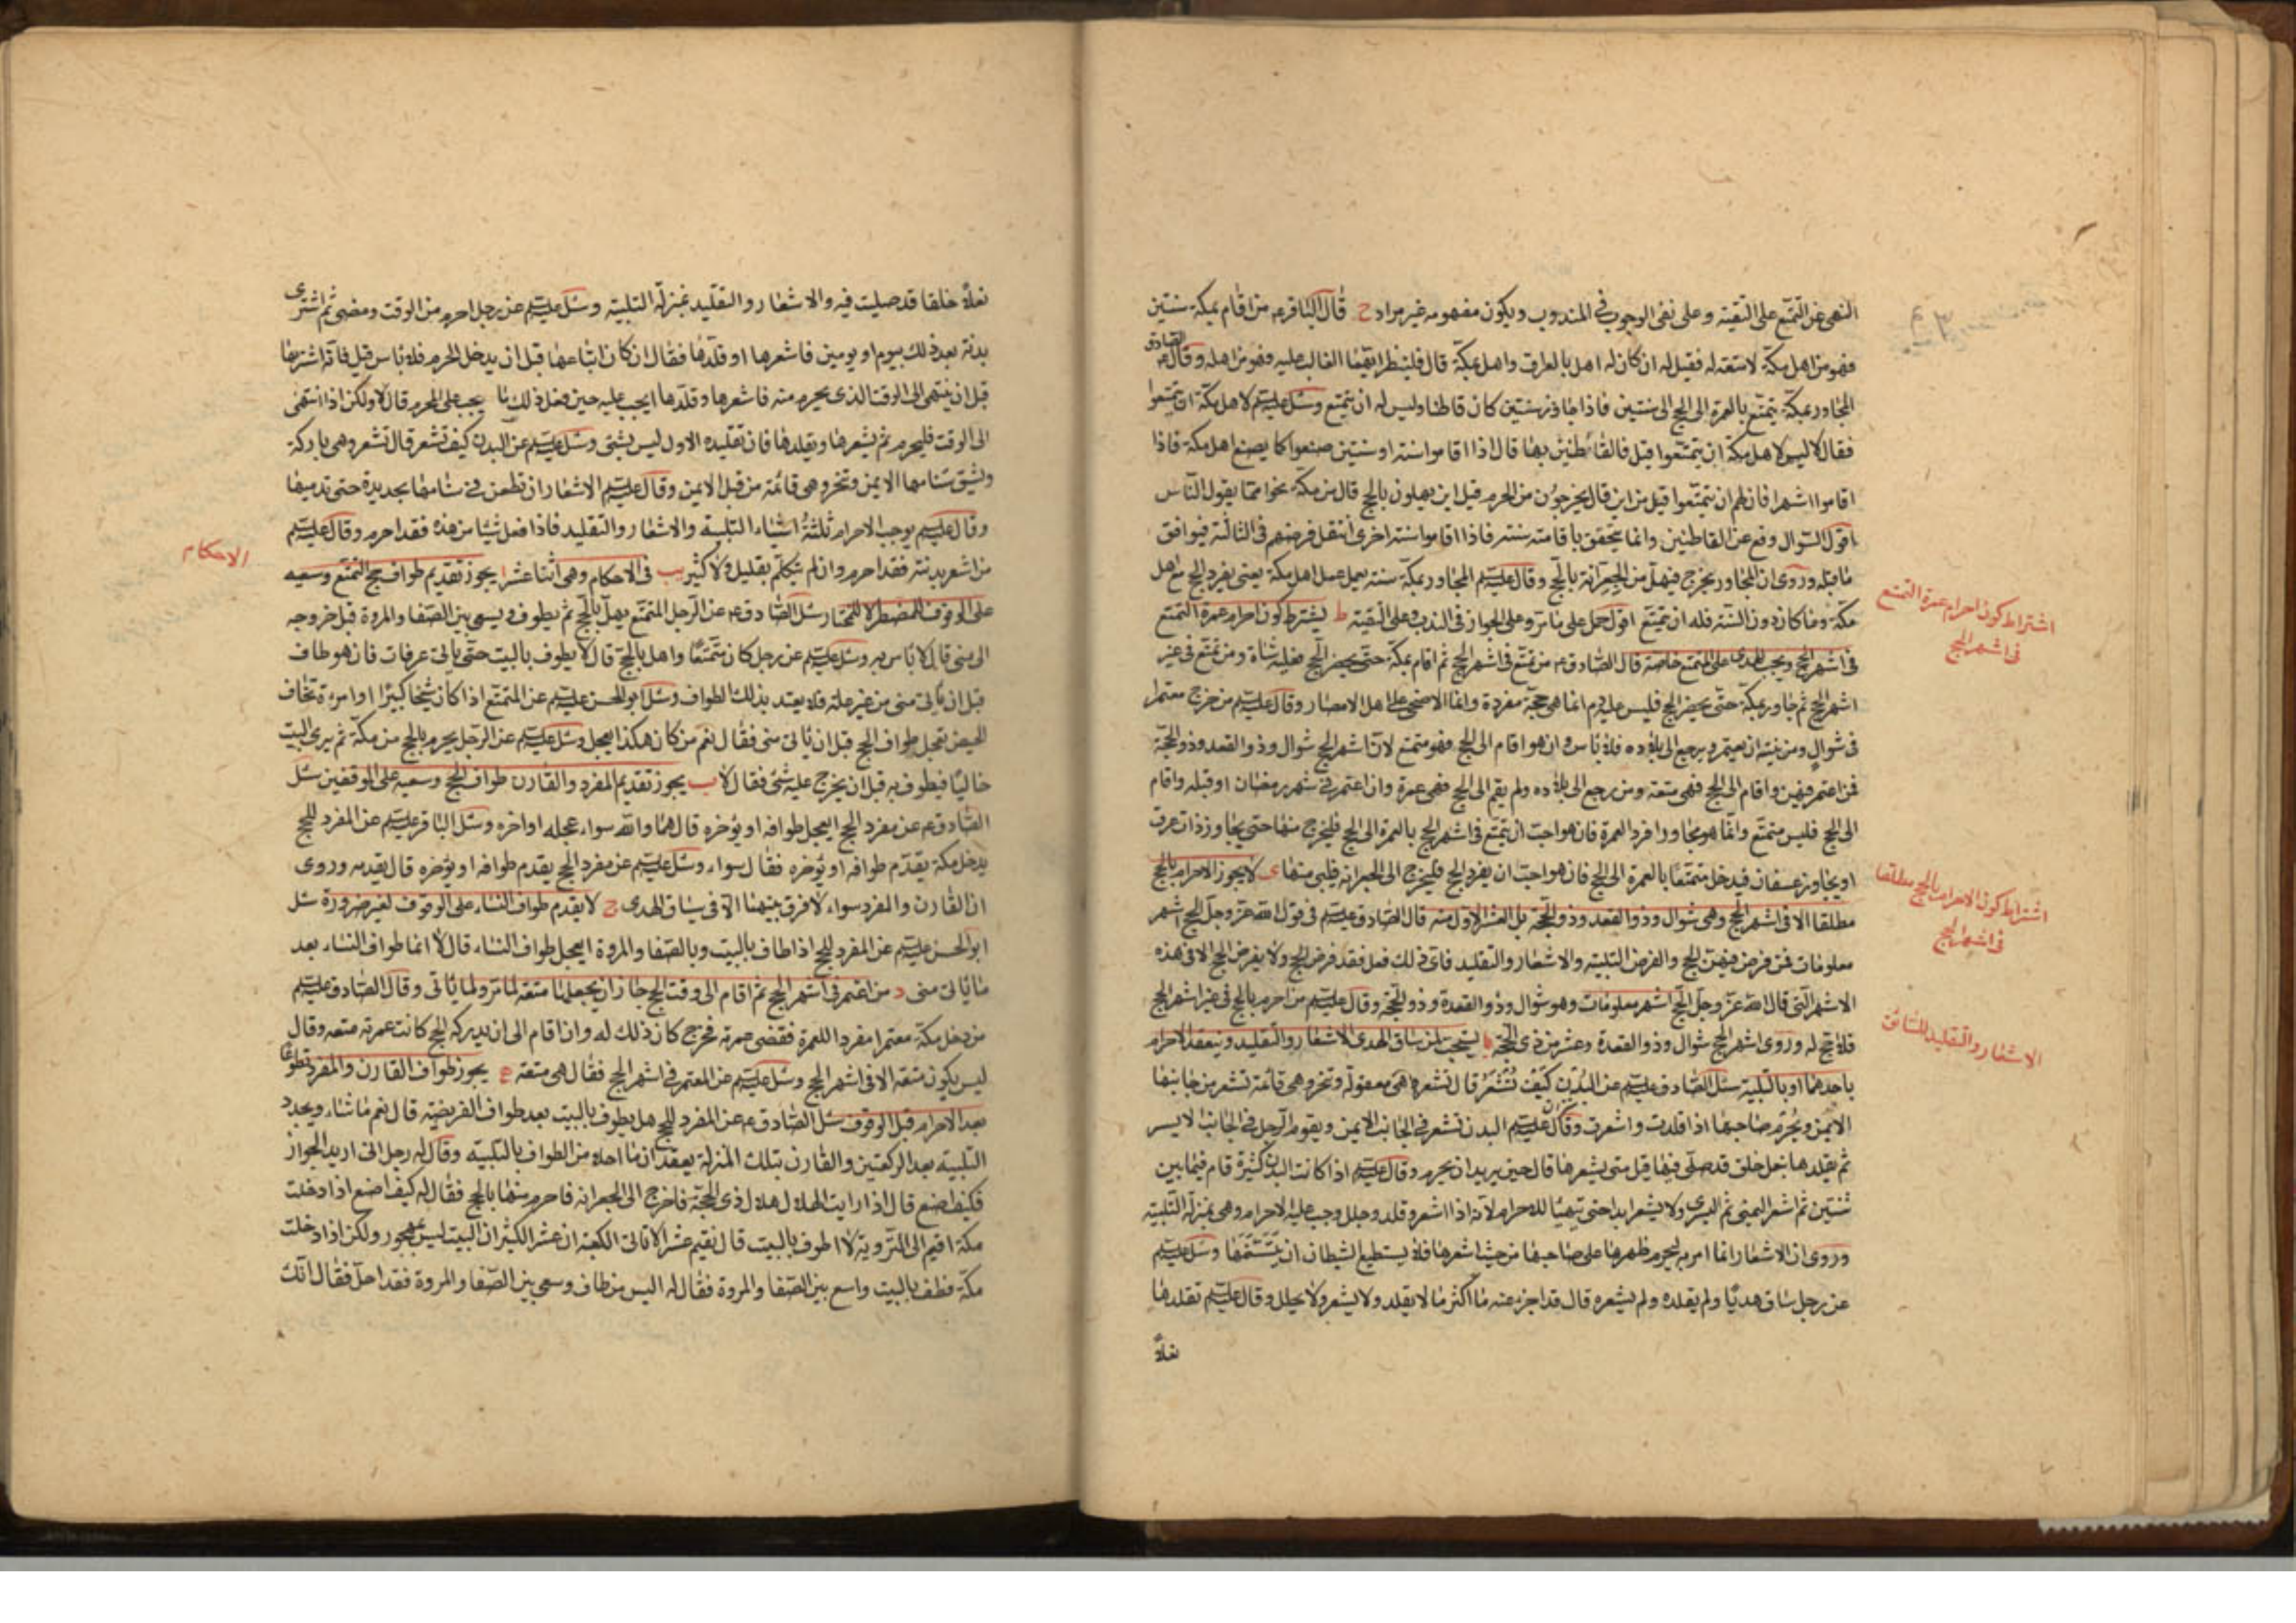 النهى عن التمتع على التقية وعلى نفى الوجوب فى المندوب ويكون مفهومه غير مراد ح قال الباقر ع من اقام بمكة سنتين
فهو من اهل مكة لا متعة له فقيل له ان كان له اهل بالعراق واهل بمكة قال فلينظر ايهما الغالب عليه فهو من اهله وقال الصادق ع
المجاور بمكة يتمتع بالعمرة الى الحج الى سنتين فاذا جاوز سنتين كان قاطنا وليس له ان يتمتع وسئل عليه السلم لاهل مكة ان يتمتعوا
فقال لا ليس لاهل مكة ان يتمتعوا قيل فالقاطنين بها قال اذا اقاموا سنة او سنتين صنعوا كما يصنع اهل مكة فاذا
اقاموا اشهرا فان لهم ان يتمتعوا قيل من اين قال يخرجون من الحرم قيل اين يهلون بالحج قال من مكة نحوا مما يقول الناس
اقول السؤال وقع عن القاطنين وانما يتحقق باقامته سنة فاذا اقاموا سنة اخرى انتقل فرضهم فى الثالثة فيوافق
ما قبله وروى ان المجاور يخرج فيهل من الجعرانة بالحج وقال عليه السلم المجاور بمكة سنة يعمل عمل اهل مكة يعنى يفرد الحج مع اهل
مكة وما كان دون السنة فله ان يتمتع اقول حمل على ما مر وعلى الجواز فى الندب وعلى التقية ط يشترط كون احرام عمرة التمتع
فى اشهر الحج ويجب الهدى على المتمتع خاصة قال الصادق ع من تمتع فى اشهر الحج ثم اقام بمكة حتى يحضر الحج فعليه شاة ومن تمتع فى غير
اشهر الحج ثم جاور بمكة حتى يحضر الحج فليس عليه دم انما هى حجة مفردة وانما الاضحى على اهل الامصار وقال عليه السلم من خرج معتمرا
فى شوال ومن نيته ان يعتمر ويرجع الى بلاده فلا باس وان هو اقام الى الحج فهو متمتع لان اشهر الحج شوال وذو القعد وذو الحجة
فمن اعتمر فيهن واقام الى الحج فهى متعة ومن رجع الى بلاده ولم يقم الى الحج فهى عمرة وان اعتمر فى شهر رمضان او قبله واقام
الى الحج فليس متمتع وانما هو مجاور افرد العمرة فان هو احب ان يتمتع فى اشهر الحج بالعمرة الى الحج فليخرج منها حتى يجاوز ذات عرق
او يجاوز عسفان فيدخل متمتعا بالعمرة الى الحج فان هو احب ان يفرد الحج فليخرج الى الجعرانه فيلبى منها ى لا يجوز الاحرام بالحج
مطلقا الا فى اشهر الحج وهى شوال وذو القعد وذو الحجة بل العشر الاول منه قال الصادق عليه السلم فى قول الله عز وجل الحج اشهر
معلومات فمن فرض فيهن الحج والفرض التلبية والاشعار والتقليد فاى ذلك فعل فقد فرض الحج ولا يفرض الحج الا فى هذه
الاشهر التى قال الله عز وجل الحج اشهر معلومات وهو شوال وذو القعدة وذو الحجة وقال عليه السلم من احرم بالحج فى غير اشهر الحج
فلا حج له وروى اشهر الحج شوال وذو القعدة وعشر من ذى الحجة يا يستحب لمن ساق الهدى الاشعار والتقليد وينعقد الاحرام
باحدهما او بالتلبية سئل الصادق عليه السلم عن البدن كيف تشعر قال تشعر وهى معقولة وتنحر وهى قائمة تشعر من جانبها
الايمن ويحرم صاحبها اذا قلدت واشعرت وقال عليه السلم البدن تشعر فى الجانب الايمن ويقوم الرجل فى الجانب الايسر
ثم يقلدها بنعل خلق قد صلى فيها قيل متى يشعرها قال حين يريد ان يحرم وقال عليه السلم اذا كانت البدن كثيرة قام فيما بين
ثنتين ثم اشعر اليمنى ثم اليسرى ولا يشعر ابدا حتى يتهيأ للاحرام لانه اذا اشعر وقلد وجلل وجب عليه الاحرام وهى بمنزلة التلبية
وروى ان الاشعار انما امر به ليحرم ظهرها على صاحبها من حيث اشعرها فلا يستطيع الشيطان ان يتسنمها وسئل عليه السلم
عن رجل ساق هديا ولم يقلده ولم يشعره قال قد اجزء عنه ما اكثر ما لا يقلد ولا يشعر ولا يجلل وقال عليه السلم تقلدها
نعلا
اشتراط كون احرام عمرة التمتع
فى اشهر الحج
اشتراط كون الاحرام بالحج مطلقا
فى اشهر الحج
الاشعار والتقليد للسائق
نعلا خلقا قد صليت فيه والاشعار والتقليد بمنزلة التلبية وسئل عليه السلم عن رجل احرم من الوقت ومضى ثم اشترى
بدنة بعد ذلك بيوم او يومين فاشعرها او قلدها فقال ان كان ابتاعها قبل ان يدخل الحرم فلا باس قيل فانه اشتريها
قبل ان ينتهى الى الوقت الذى يحرم منه فاشعرها وقلدها ايجب عليه حين فعل ذلك ما يجب على المحرم قال لا ولكن اذا انتهى
الى الوقت فليحرم ثم يشعرها ويقلدها فان تقليده الاول ليس بشئ وسئل عليه السلم عن البدن كيف تشعر قال تشعر وهى باركة
ويشق سنامها الايمن وتنحر وهى قائمة من قبل الايمن وقال عليه السلم الاشعار ان تطعن فى سنامها بحديدة حتى تدميها
وقال عليه السلم يوجب الاحرام ثلثة اشياء التلبية والاشعار والتقليد فاذا فعل شيئا من هذه فقد احرم وقال عليه السلم
من اشعر بدنته فقد احرم وان لم يتكلم بقليل ولا كثير يب فى الاحكام وهى اثنا عشر ا يجوز تقديم طواف حج التمتع وسعيه
على الوقوف للمضطر لا للمختار سئل الصادق ع عن الرجل المتمتع يهل بالحج ثم يطوف ويسعى بين الصفا والمروة قبل خروجه
الى منى قال لا باس به وسئل عليه السلم عن رجل كان متمتعا واهل بالحج قال لا يطوف بالبيت حتى ياتى عرفات فان هو طاف
قبل ان ياتى منى من غير علة فلا يعتد بذلك الطواف وسئل ابو الحسن عليه السلم عن المتمتع اذا كان شيخا كبيرا او امرءة تخاف
الحيض تعجل طواف الحج قبل ان ياتى منى فقال نعم من كان هكذا يعجل وسئل عليه السلم عن الرجل يحرم بالحج من مكة ثم يرى البيت
خاليا فيطوف به قبل ان يخرج عليه شئ فقال لا ب يجوز تقديم المفرد والقارن طواف الحج وسعيه على الوقفين سئل
الصادق ع عن مفرد الحج ايعجل طوافه او يؤخره قال هما والله سواء عجله او اخره وسئل الباقر عليه السلم عن المفرد للحج
يدخل مكة يقدم طوافه او يؤخره فقال سواء وسئل عليه السلم عن مفرد الحج يقدم طوافه او يؤخره قال يقدمه وروى
ان القارن والمفرد سواء لا فرق بينهما الا فى سياق الهدى ج لا يقدم طواف النساء على الوقوف لغير ضرورة سئل
ابو الحسن عليه السلم عن المفرد للحج اذا طاف بالبيت وبالصفا والمروة ايعجل طواف النساء قال لا انما طواف النساء بعد
ما ياتى منى د من اعتمر فى اشهر الحج ثم اقام الى وقت الحج جاز ان يجعلها متعة لما مر ولما ياتى وقال الصادق عليه السلم
من دخل مكة معتمرا مفردا للعمرة فقضى عمرته فخرج كان ذلك له وان اقام الى ان يدركه الحج كانت عمرته متعه وقال
ليس يكون متعة الا فى اشهر الحج وسئل عليه السلم عن المعتمر فى اشهر الحج فقال هى متعة ه يجوز طواف القارن والمفرد تطوعا
بعد الاحرام قبل الوقوف سئل الصادق ع عن المفرد للحج هل يطوف بالبيت بعد طواف الفريضة قال نعم ما شاء ويجدد
التلبية بعد الركعتين والقارن بتلك المنزلة يعقدان ما احلا من الطواف بالتلبية وقال له رجل انى اريد الجواز
فكيف اصنع قال اذا رايت الهلال هلال ذى الحجة فاخرج الى الجعرانه فاحرم منها بالحج فقال له كيف اصنع اذا دخلت
مكة اقيم الى التروية لا اطوف بالبيت قال تقيم عشرا لا تاتى الكعبه ان عشرا لكثير ان البيت ليس بمهجور ولكن اذا دخلت
مكة فطف بالبيت واسع بين الصفا والمروة فقال له اليس من طاف وسعى بين الصفا والمروة فقد احل فقال انك
الاحكام